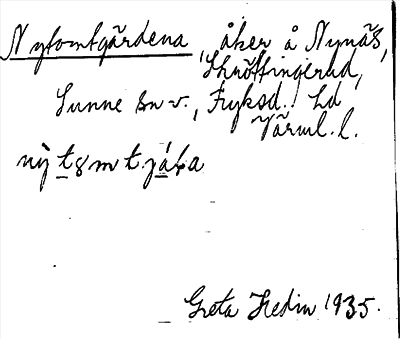 Nytomtgärdena, åker å Nynäs,
Skröttingerud,
Sunne sn v., Fryksd. hd
Värml. l.
Greta Hedin 1935.